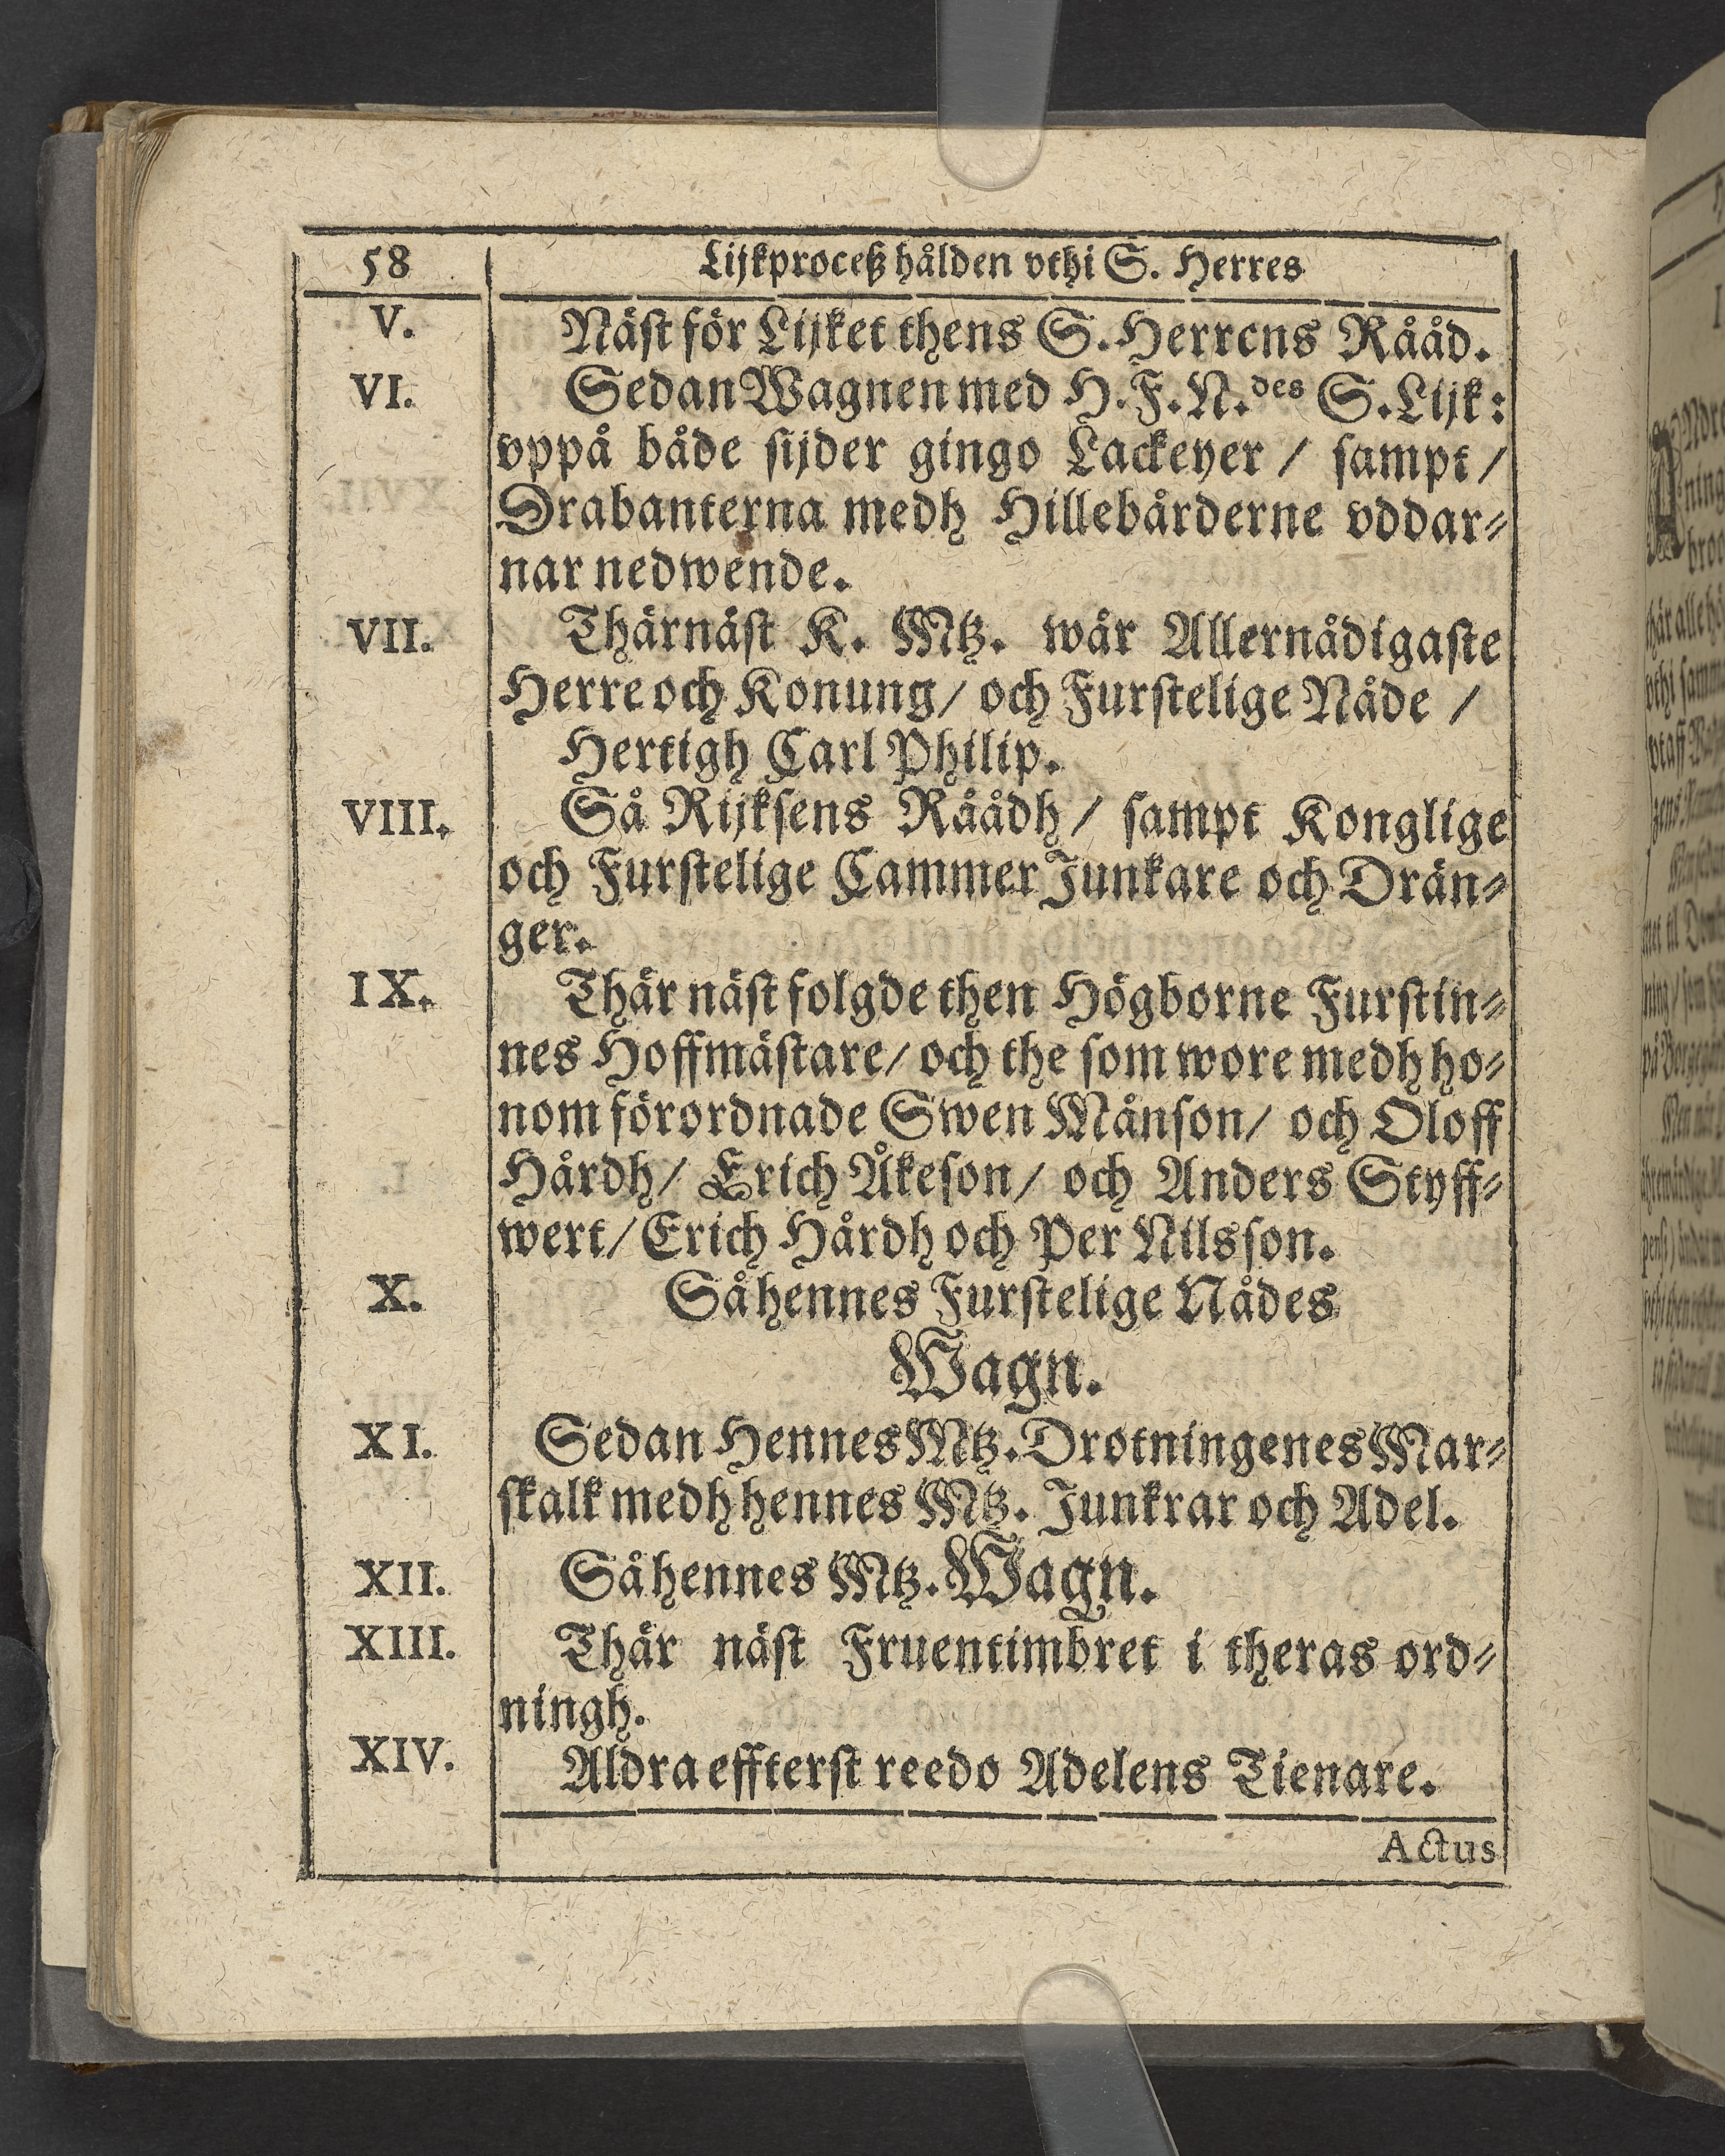 58 Lijkproceß hålden vthi S. Herres
V. Näst för Lijket thens S. Herrens Rååd.
VI. Sedan Wagnen med H. F. N.des S. Lijk:
vppå både sijder gingo Lackeyer / sampt /
Drabanterna medh Hillebårderne vddar⸗
nar nedwende.
VII. Thärnäst K. Mtz. wår Allernådigaste
Herre och Konung/ och Furstelige Nåde /
Hertigh Carl Philip.
VIII. Så Rijksens Råådh / sampt Konglige
och Furstelige Cammer Junkare och Drän⸗
ger.
IX. Thär näst folgde then Högborne Furstin⸗
nes Hoffmästare/ och the som wore medh ho⸗
nom förordnade Swen Månson/ och Oloff
Hårdh/ Erich Åkeson/ och Anders Styff⸗
wert/ Erich Hårdh och Per Nilsson.
X. Så hennes Furstelige Nådes
Wagn.
XI. Sedan Hennes Mtz. Drotningenes Mar⸗
skalk medh hennes Mtz. Junkrar och Adel.
XII. Så hennes Mtz. Wagn.
XIII. Thär näst Fruentimbret i theras ord⸗
ningh.
XIV. Aldra effterst reedo Adelens Tienare.
Actus